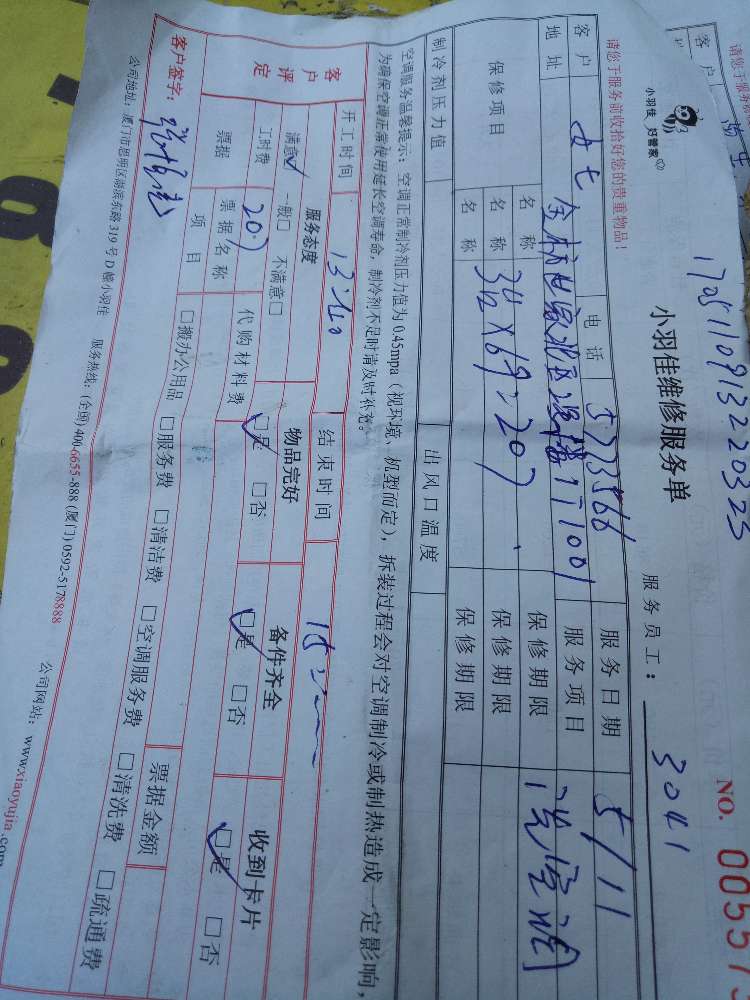 17051109132220323
小羽佳 好管家
小羽佳维修服务单
NO. 00557
请您于服务前收拾好您的贵重物品！
服务员工： 3041
客户 电话 5773566 服务日期 5/11
地址 服务项目 洗空调
保修项目 名称 保修期限
名称 34×69=207 保修期限
名称 保修期限
制冷剂压力值 出风口温度
空调服务温馨提示：空调正常制冷剂压力值为0.45mpa（视环境、机型而定），拆装过程会对空调制冷或制热造成一定影响，
为确保空调正常使用延长空调寿命，制冷剂不足时请及时补充。
开工时间 13:40 结束时间 15:
客户评定 服务态度 物品完好 备件齐全 收到卡片
满意☑ 一般□ 不满意□ ☑是 □否 ☑是 □否 ☑是 □否
工时费 207 代购材料费
票据 票据名称 票据金额
项目 □搬办公用品 □服务费 □清洁费 □空调服务费 □清洗费 □疏通费
客户签字：
公司地址：厦门市思明区湖滨东路319号D幢小羽佳 服务热线：(全国) 400-6655-888 (厦门) 0592-5178888 公司网站：www.xiaoyujia.com
请您于服务前
客户